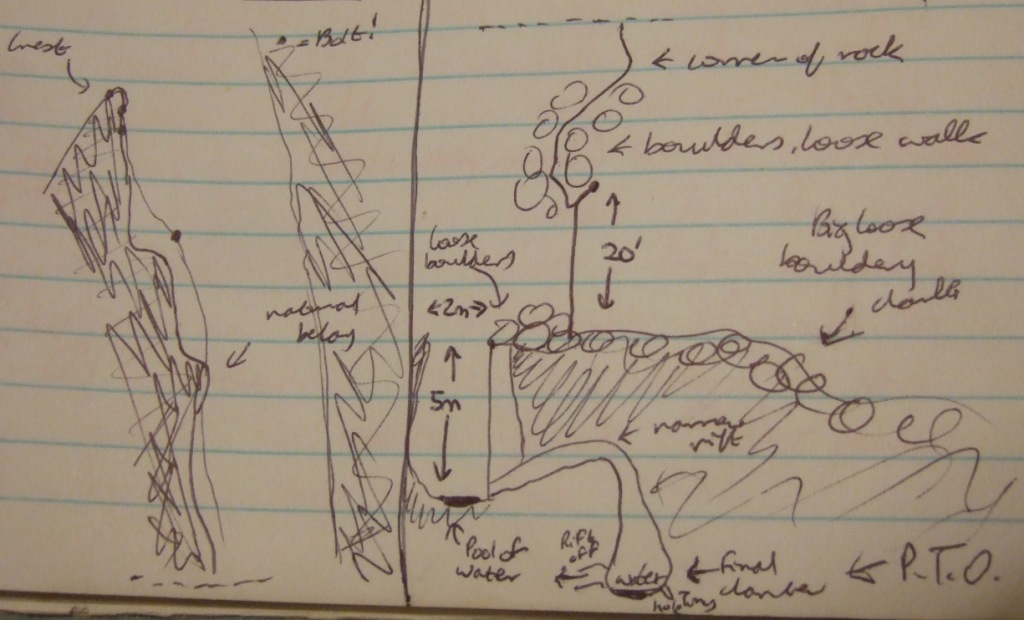 Crest
Bolt!
natural
belay
corner of rock
boulders, loose walls
20'
loose
boulders
2m
Big loose
bouldery
5m
narrow
rift
Pool of
water
Rift
off
water
final
chamber
P.T.O.